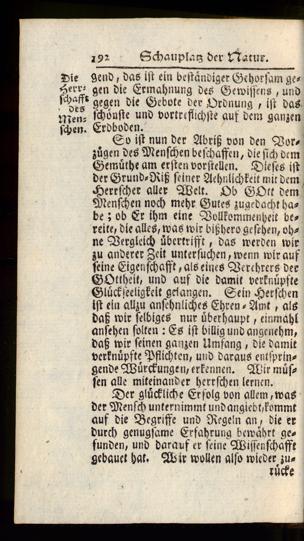 192 Schauplatz der Natur.
Die
Herr-
schafft
des
Men-
schen.
gend, das ist ein beständiger Gehorsam ge-
gen die Ermahnung des Gewissens, und
gegen die Gebote der Ordnung, ist das
schönste und vortreflichste auf dem ganzen
Erdboden.
So ist nun der Abriß von den Vor-
zügen des Menschen beschaffen, die sich dem
Gemüthe am ersten vorstellen. Dieses ist
der Grund-Riß seiner Aehnlichkeit mit dem
Herrscher aller Welt. Ob GOtt dem
Menschen noch mehr Gutes zugedacht ha-
be; ob Er ihm eine Vollkommenheit be-
reite, die alles, was wir bißhero gesehen, oh-
ne Vergleich übertrifft, das werden wir
zu anderer Zeit untersuchen, wenn wir auf
seine Eigenschafft, als eines Verehrers der
GOttheit, und auf die damit verknüpfte
Glückseeligkeit gelangen. Sein Herschen
ist ein allzu ansehnliches Ehren-Amt, als
daß wir selbiges nur überhaupt, einmahl
ansehen solten: Es ist billig und angenehm,
daß wir seinen ganzen Umfang, die damit
verknüpfte Pflichten, und daraus entsprin-
gende Würckungen, erkennen. Wir müs-
sen alle miteinander herrschen lernen.
Der glückliche Erfolg von allem, was
der Mensch unternimmt und angiebt, kommt
auf die Begriffe und Regeln an, die er
durch genugsame Erfahrung bewährt ge-
funden, und darauf er seine Wissenschafft
gebauet hat. Wir wollen also wieder zu-
rücke